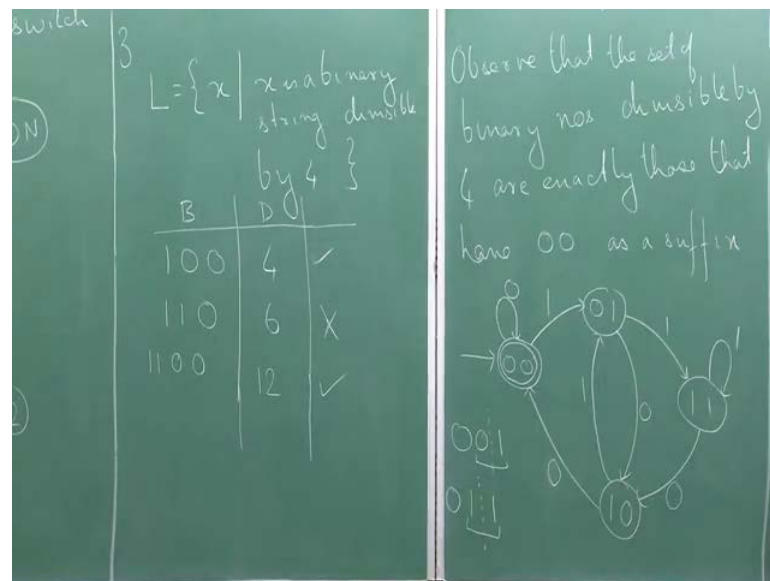 switch
3
ON
L = { x | x is a binary
string divisible
by 4 }
B D
100 4 ✓
110 6 X
1100 12 ✓
2
Observe that the set of
binary nos divisible by
4 are exactly those that
have 00 as a suffix
0
1
01
1
00
1
11
1
0
001
0
0
011
10